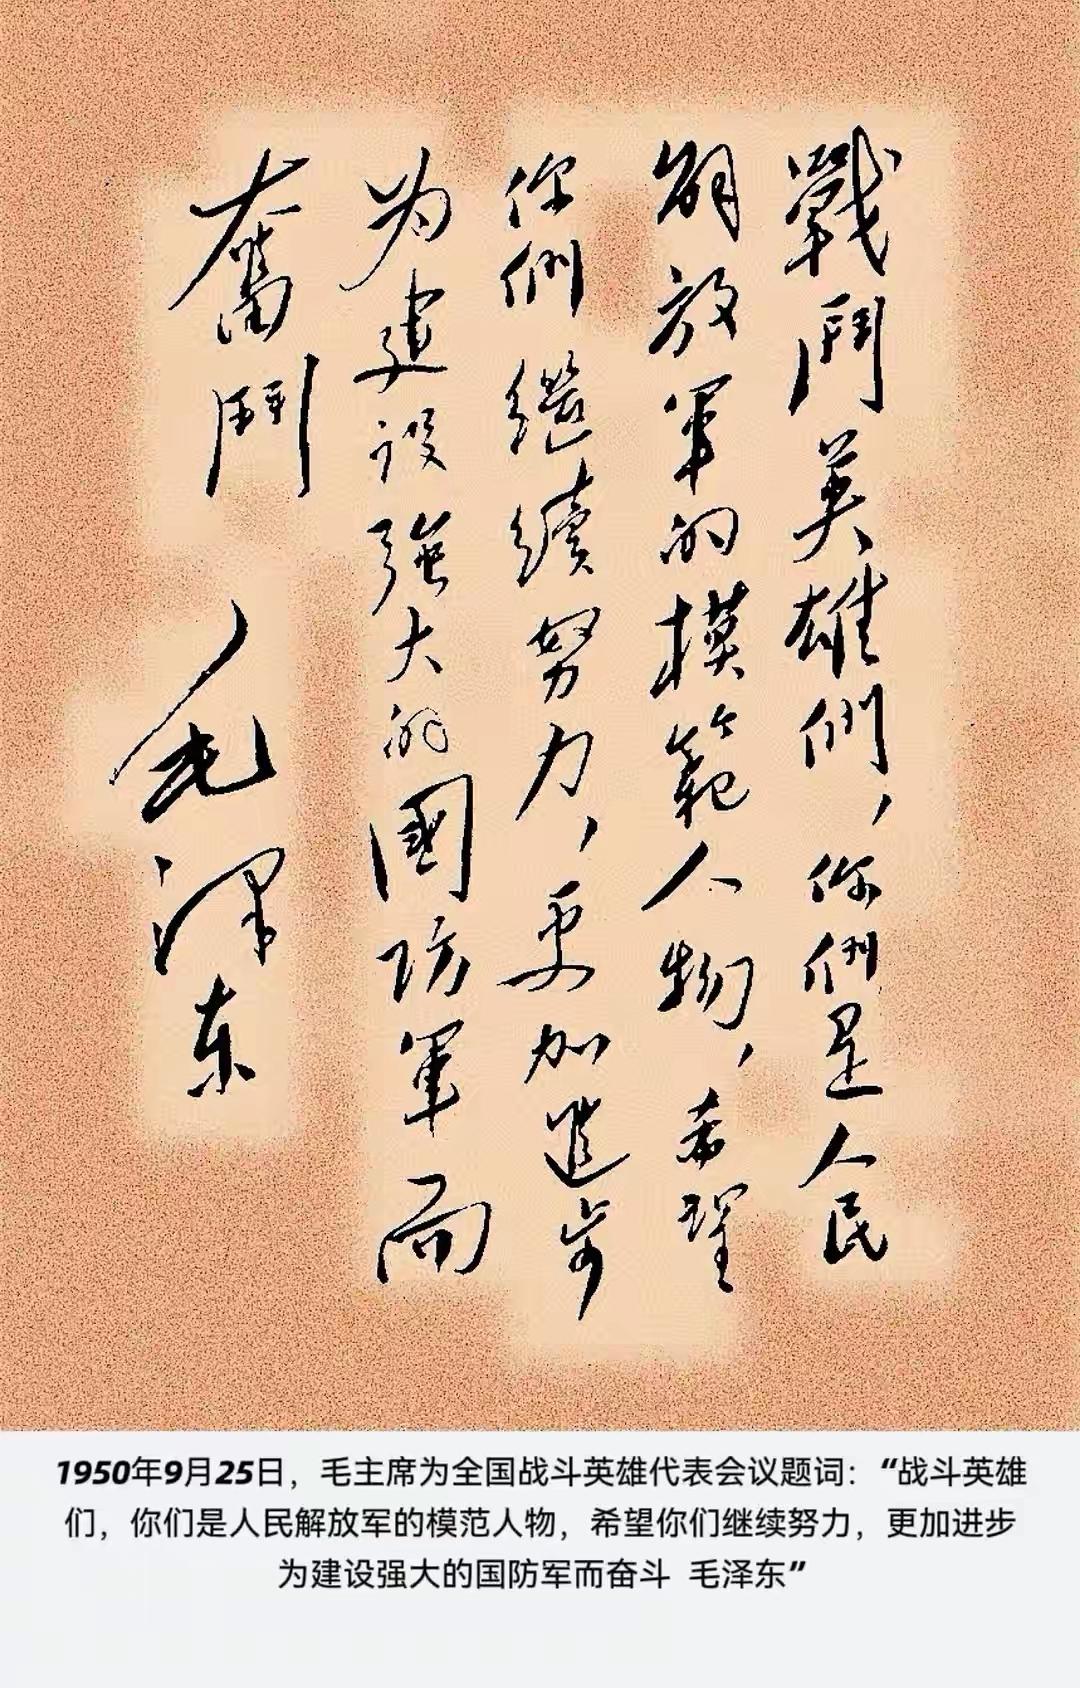 戰鬥英雄們，你們是人民
解放军的模範人物，希望
你們继續努力，更加進步
为建设強大的國防軍而
奮鬥
毛泽东
1950年9月25日，毛主席为全国战斗英雄代表会议题词：“战斗英雄
们，你们是人民解放军的模范人物，希望你们继续努力，更加进步
为建设强大的国防军而奋斗 毛泽东”